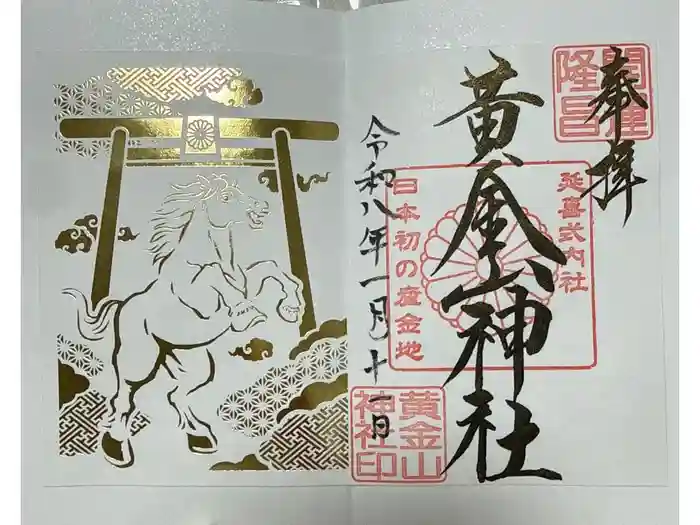 奉拝
開運
隆昌
黄金山神社
延喜式内社
日本初の産金地
令和八年一月十一日
黄金山
神社印